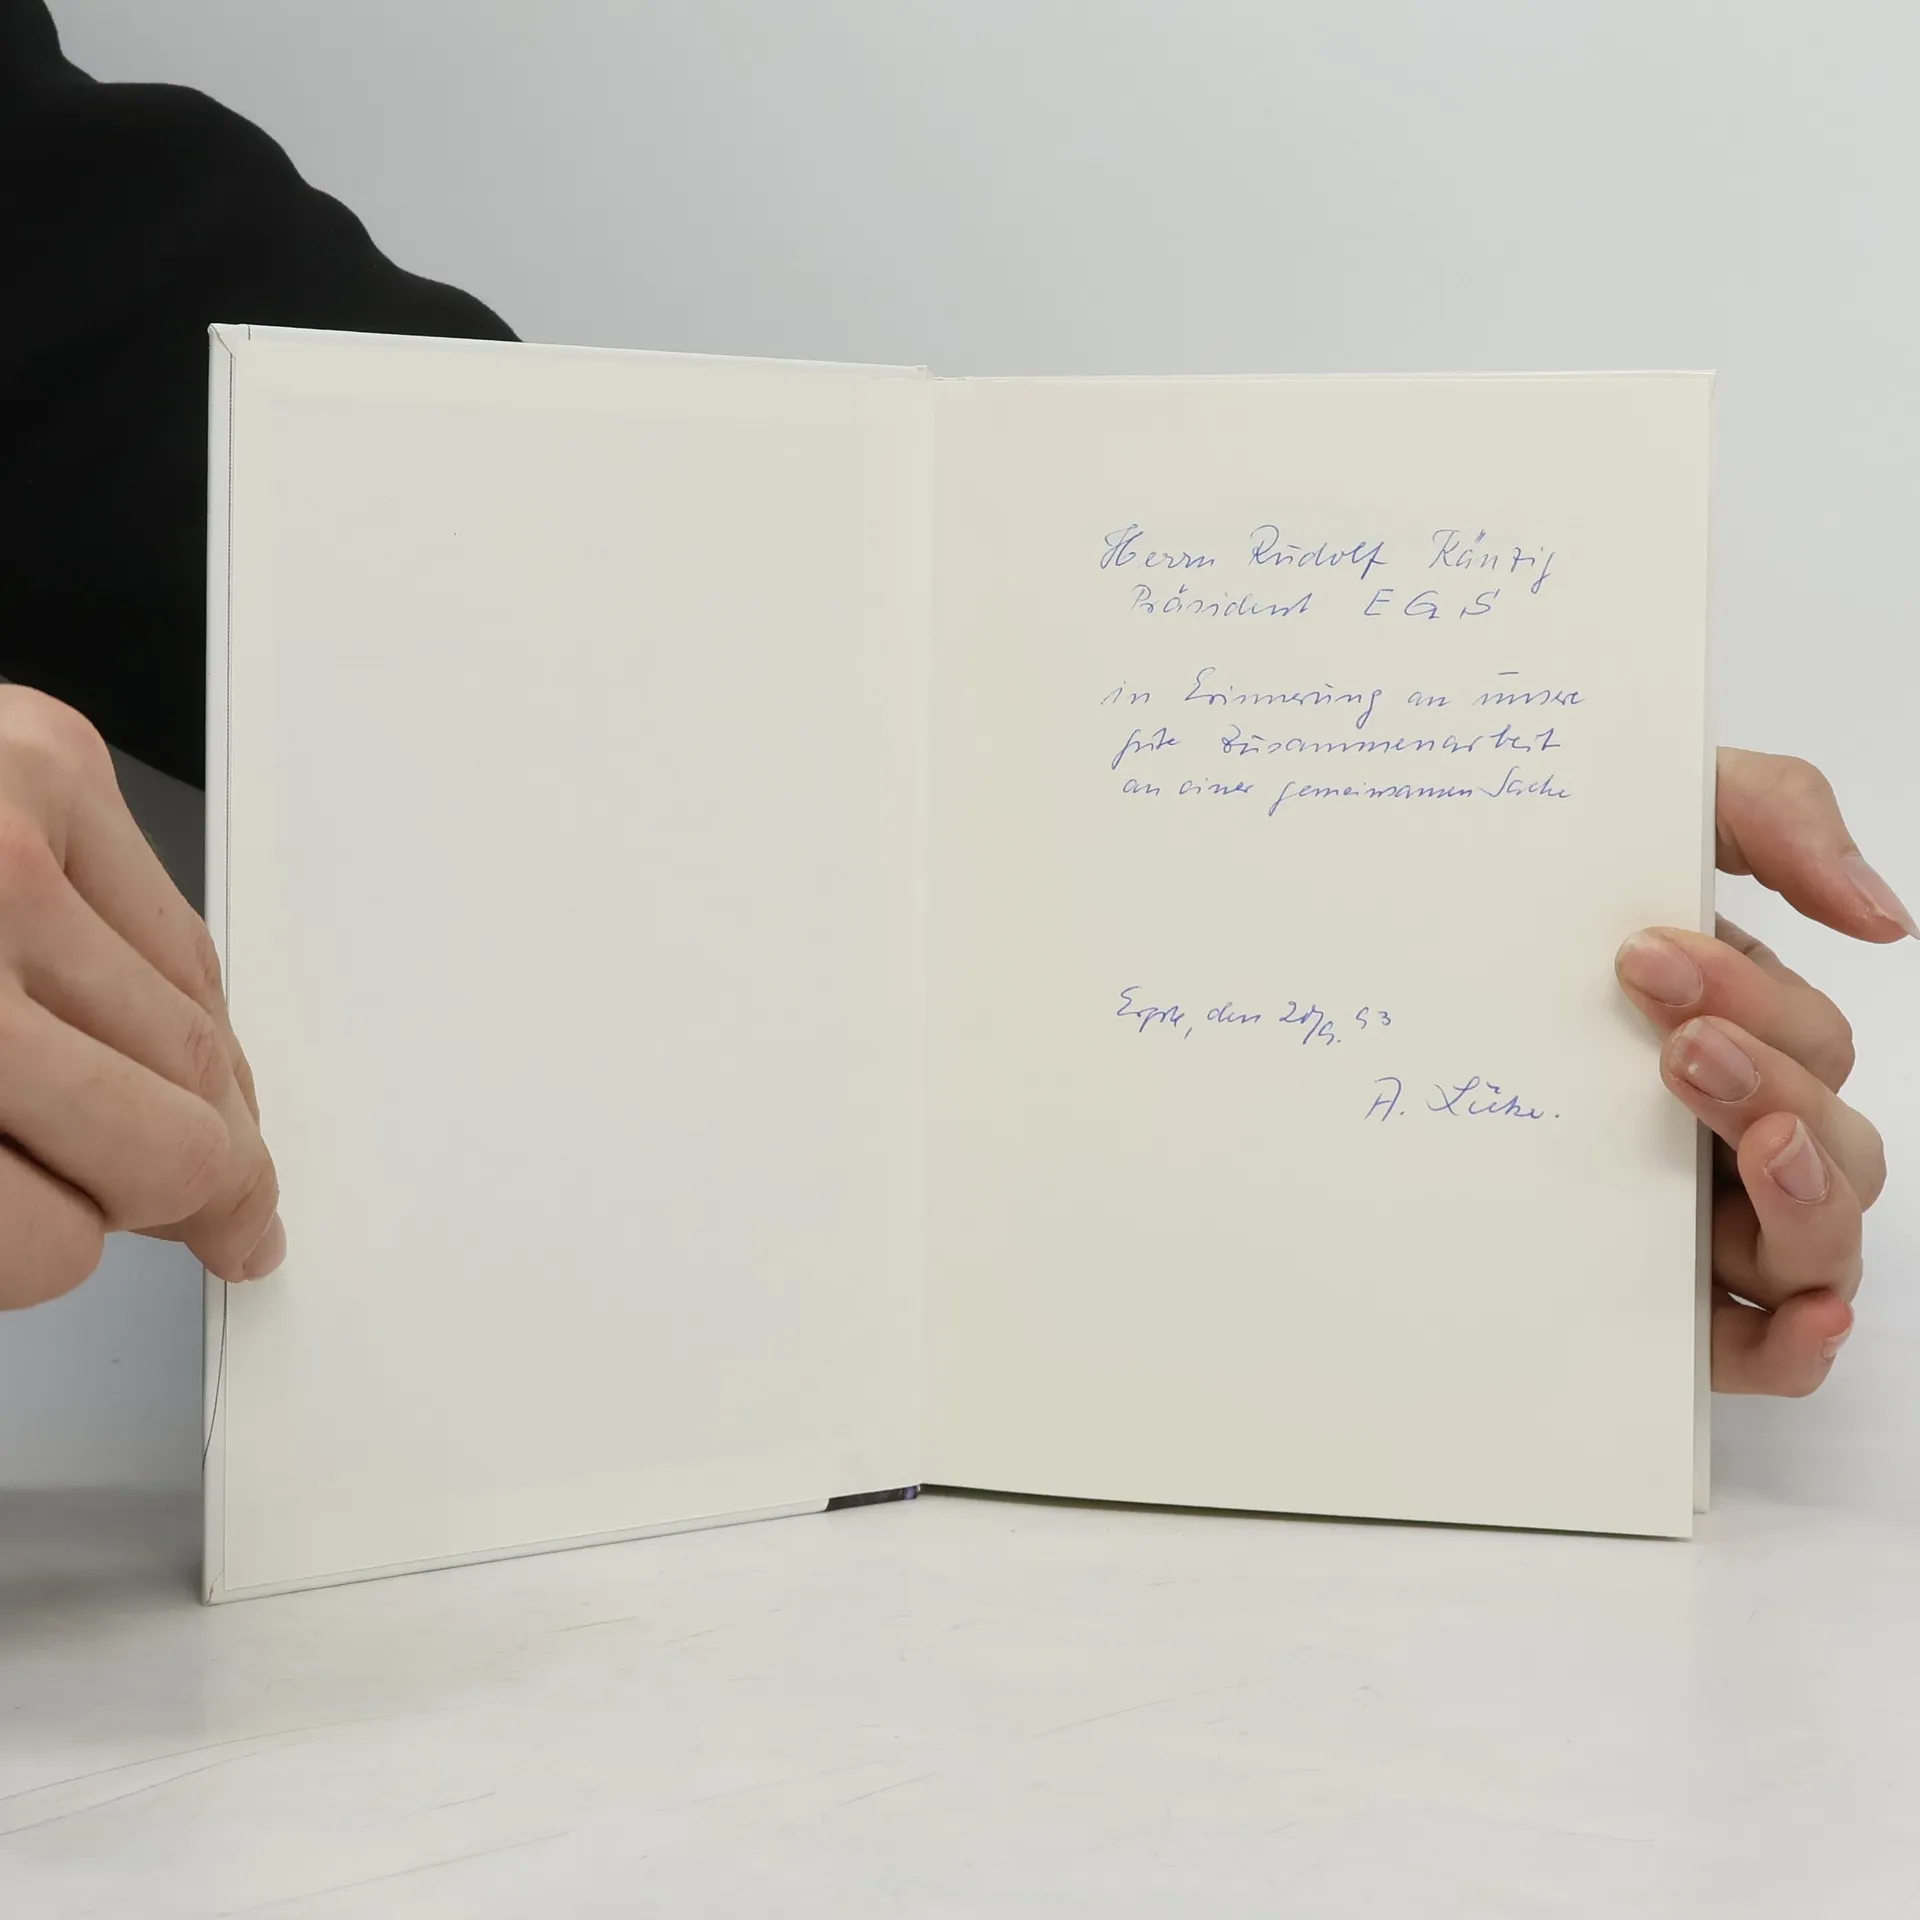 Herrn Rudolf Känzig
Präsident EGS
in Erinnerung an unsere
gute Zusammenarbeit
an einer gemeinsamen Sache
den 93
A. Lücke.